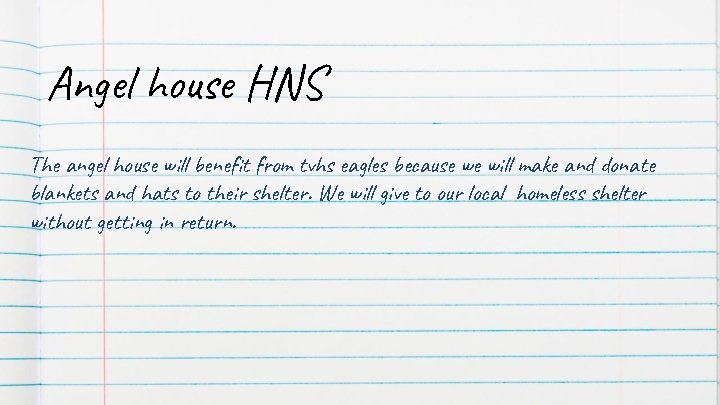 Angel house HNS
The angel house will benefit from tvhs eagles because we will make and donate
blankets and hats to their shelter. We will give to our local homeless shelter
without getting in return.